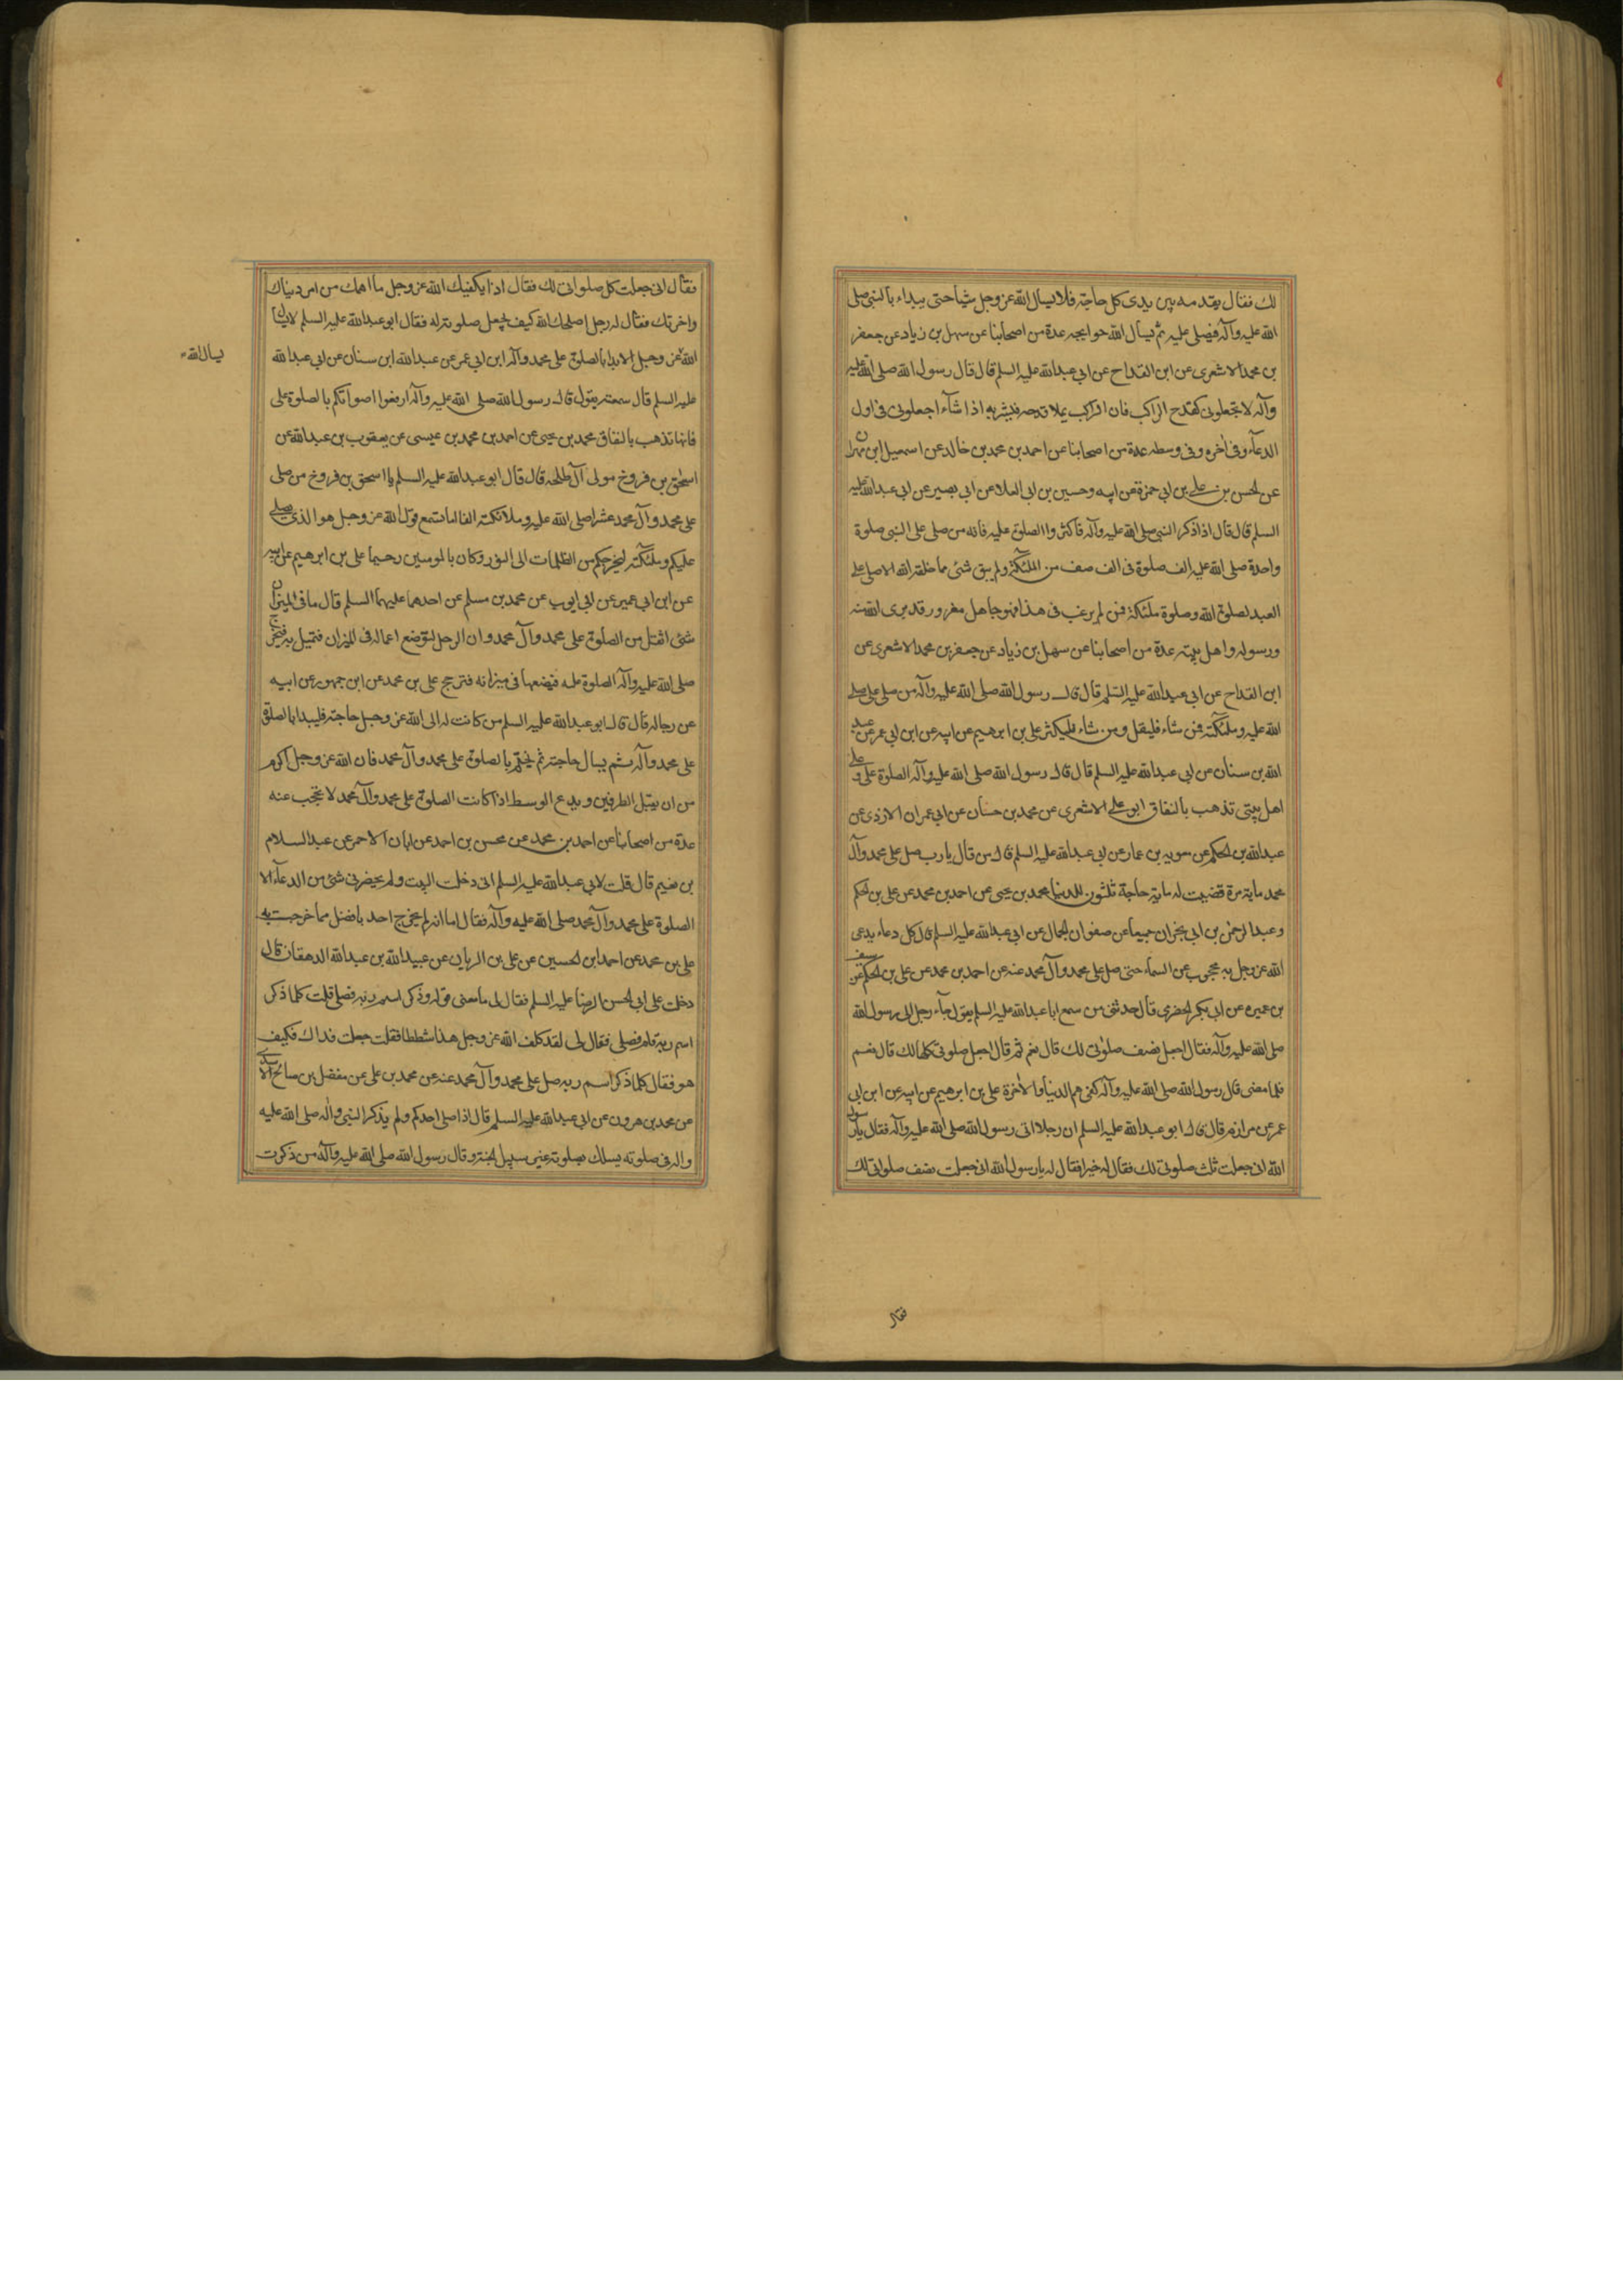 لك فقال يقدمه بين يدى كل حاجة فلا يسأل الله عز وجل شيئا حتى يبداء بالنبى صلى
الله عليه وآله فيصلى عليه ثم يسأل الله حوايجه عدة من اصحابنا عن سهل بن زياد عن جعفر
بن محمد الاشعرى عن ابن القداح عن ابى عبد الله عليه السلم قال قال رسول الله صلى الله عليه
وآله لا تجعلونى كقدح الراكب فان الراكب يملا قدحه فيشربه اذا شآء اجعلونى فى اول
الدعآء وفى آخره وفى وسطه عدة من اصحابنا عن احمد بن محمد بن خالد عن اسمعيل ابن مهران
عن الحسن بن على بن ابى حمزة عن ابيه وحسين بن ابى العلا عن ابى بصير عن ابى عبد الله عليه
السلم قال قال اذا ذكر النبى صلى الله عليه وآله فاكثروا الصلوة عليه فانه من صلى على النبى صلوة
واحدة صلى الله عليه الف صلوة فى الف صف من الملئكة ولم يبق شئ مما خلقه الله الا صلى على
العبد لصلوة الله وصلوة ملئكته فمن لم يرغب فى هذا فهو جاهل مغرور قد برى الله منه
ورسوله واهل بيته عدة من اصحابنا عن سهل بن زياد عن جعفر بن محمد الاشعرى عن
ابن القداح عن ابى عبد الله عليه السلم قال قال رسول الله صلى الله عليه وآله من صلى على صلى
الله عليه وملئكته فمن شاء فليقل ومن شاء فليكثر على بن ابرهيم عن ابيه عن ابن ابى عمر عن عبد
الله بن سنان عن ابى عبد الله عليه السلم قال قال رسول الله صلى الله عليه وآله الصلوة على وعلى
اهل بيتى تذهب بالنفاق ابو على الاشعرى عن محمد بن حسان عن ابى عمران الازدى عن
عبد الله بن الحكم عن معويه بن عمار عن ابى عبد الله عليه السلم قال من قال يا رب صل على محمد وآل
محمد ماية مرة قضيت له ماية حاجة ثلثون للدنيا محمد بن يحيى عن احمد بن محمد عن على بن الحكم
وعبد الرحمن بن ابى نجران جميعا عن صفوان الجمال عن ابى عبد الله عليه السلم قال كل دعاء يدعى
الله عز وجل به محجوب عن السماء حتى صل على محمد وآل محمد عنه عن احمد بن محمد عن على بن الحكم عن سيف
بن عميره عن ابى بكر الحضرمى قال حدثنى من سمع ابا عبد الله عليه السلم يقول جآء رجل الى رسول الله
صلى الله عليه وآله فقال اجعل نصف صلوتى لك قال نعم ثم قال اجعل صلوتى كلها لك قال نعم
فلما مضى قال رسول الله صلى الله عليه وآله كفى هم الدنيا والآخرة على بن ابرهيم عن ابيه عن ابن ابى
عمر عن مرازم قال قال ابو عبد الله عليه السلم ان رجلا اتى رسول الله صلى الله عليه وآله فقال يا رسول
الله انى جعلت ثلث صلوتى لك فقال له خيرا فقال له يا رسول الله انى جعلت نصف صلواتى لك
فقال
فقال انى جعلت كل صلواتى لك فقال اذا يكفيك الله عز وجل ما اهمك من امر دنياك
واخرتك فقال له رجل اصلحك الله كيف يجعل صلوته له فقال ابو عبد الله عليه السلم لا يسال
الله عز وجل الا بدا بالصلوة على محمد وآله ابن ابى عمر عن عبد الله ابن سنان عن ابى عبد الله
يسال الله
عليه السلم قال سمعته يقول قال رسول الله صلى الله عليه وآله ارفعوا اصواتكم بالصلوة على
فانها تذهب بالنفاق محمد بن يحيى عن احمد بن محمد بن عيسى عن يعقوب بن عبد الله عن
اسحق بن فروخ مولى آل طلحه قال قال ابو عبد الله عليه السلم يا اسحق بن فروخ من صلى
على محمد وآل محمد عشرا صلى الله عليه وملائكته الفا اما تسمع قول الله عز وجل هو الذى يصلى
عليكم وملئكته ليخرجكم من الظلمات الى النور وكان بالمومنين رحيما على بن ابرهيم عن ابيه
عن ابن ابى عمير عن ابى ايوب عن محمد بن مسلم عن احدهما عليهما السلم قال ما فى الميزان
شئ اثقل من الصلوة على محمد وآل محمد وان الرجل لتوضع اعماله فى الميزان فتميل به فيخرج
صلى الله عليه وآله الصلوة عليه فيضعها فى ميزانه فترجح على بن محمد عن ابن جمهور عن ابيه
عن رجاله قال قال ابو عبد الله عليه السلم من كانت له الى الله عز وجل حاجة فليبدا بالصلوة
على محمد وآله ثم يسال حاجته ثم يختم بالصلوة على محمد وآل محمد فان الله عز وجل اكرم
من ان يقبل الطرفين ويدع الوسط اذا كانت الصلوة على محمد وآل محمد لا تحجب عنه
عدة من اصحابنا عن احمد بن محمد عن محسن بن احمد عن ابان الاحمر عن عبد السلام
بن نعيم قال قلت لابى عبد الله عليه السلم انى دخلت البيت ولم يحضرنى شئ من الدعآء الا
الصلوة على محمد وآل محمد صلى الله عليه وآله فقال اما انه لم يخرج احد بافضل مما خرجت به
على بن محمد عن احمد ابن الحسين عن على بن الريان عن عبيد الله بن عبد الله الدهقان قال
دخلت على ابى الحسن الرضا عليه السلم فقال لى ما معنى قوله وذكر اسم ربه فصلى قلت كلما ذكر
اسم ربه قام فصلى فقال لى لقد كلف الله عز وجل هذا شططا فقلت جعلت فداك فكيف
هو فقال كلما ذكر اسم ربه صل على محمد وآل محمد عنه عن محمد بن على عن مفضل بن صالح الاسدى
عن محمد بن هرون عن ابى عبد الله عليه السلم قال اذا صلى احدكم ولم يذكر النبى وآله صلى الله عليه
واله فى صلوته يسلك بصلوته غير سبيل الجنة وقال رسول الله صلى الله عليه وآله من ذكرت